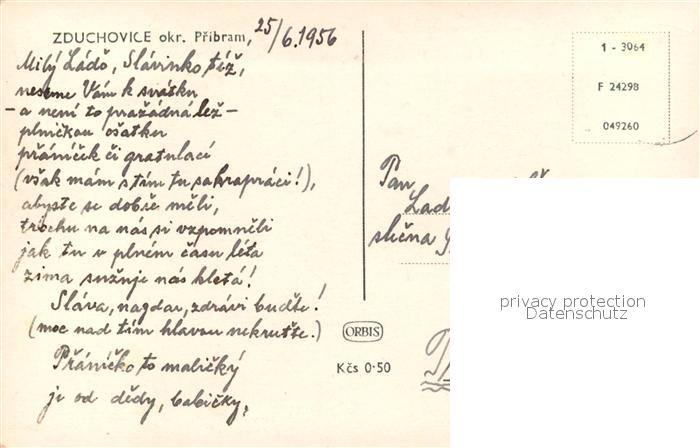 ZDUCHOVICE okr. Příbram, 25/6.1956
Milý Láďo, Slávinko též,
neseme Vám k svátku
- a není to pražádná lež -
plničkou ošatku
přáníček či gratulací
(však mám s tím tu sakrapráci!),
abyste se dobře měli,
trochu na nás si vzpomněli
jak tu v plném času léta
zima sužuje nás kletá!
Sláva, nazdar, zdrávi buďte!
(moc nad tím hlavou nekruťte.)
Přáníčko to maličký
je od dědy, babičky,
ORBIS
Kčs 0·50
1 - 3064
F 24298
049260
Pan
Lad
slečna
privacy protection
Datenschutz